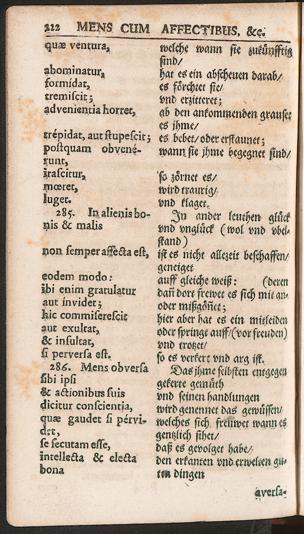 222 MENS CUM AFFECTIBUS, &c.
quæ ventura, welche wann sie zukünfftig
sind/
abominatur, har es ein abscheuen darab/
formidat, es förchtet sie/
tremiscit; vnd erzitteret;
advenientia horret, ab den ankommenden grauset
es jhme/
trépidat, aut stupescit; es bebet/oder erstaunet;
postquam obvené- wann sie jhme begegnet sind/
runt,
irascitur, so zörnet es/
mœret, wird traurig/
luget. vnd klaget.
285. In alienis bo- In ander leuthen glück
nis & malis vnd vnglück (wol vnd vbel-
stand)
non semper affecta est, ist es nicht allezeit beschaffen/
geneiget
eodem modo: auff gleiche weiß: (deren
ibi enim gratulatur dañ dort frewet es sich mit an-
aut invidet; oder mißgönet;
hic commiserescit hier aber hat es ein mitleiden
aut exultat, oder springt auff/(vor freuden)
& insultat, vnd trotzet;
si perversa est. so es verkert vnd arg ist.
286. Mens obversa Das jhme selbsten entgegen
sibi ipsi gekerte gemüth
& actionibus suis vnd seinen handlungen
dicitur conscientia, wird genennet das gewüssen/
quæ gaudet si pérvi- welches sich frewet wann es
det, gentzlich sihet/
se secutam esse, daß es gevolget habe/
intellecta & electa den erkanten vnd erwelten gu-
bona ten dingen
aversa-